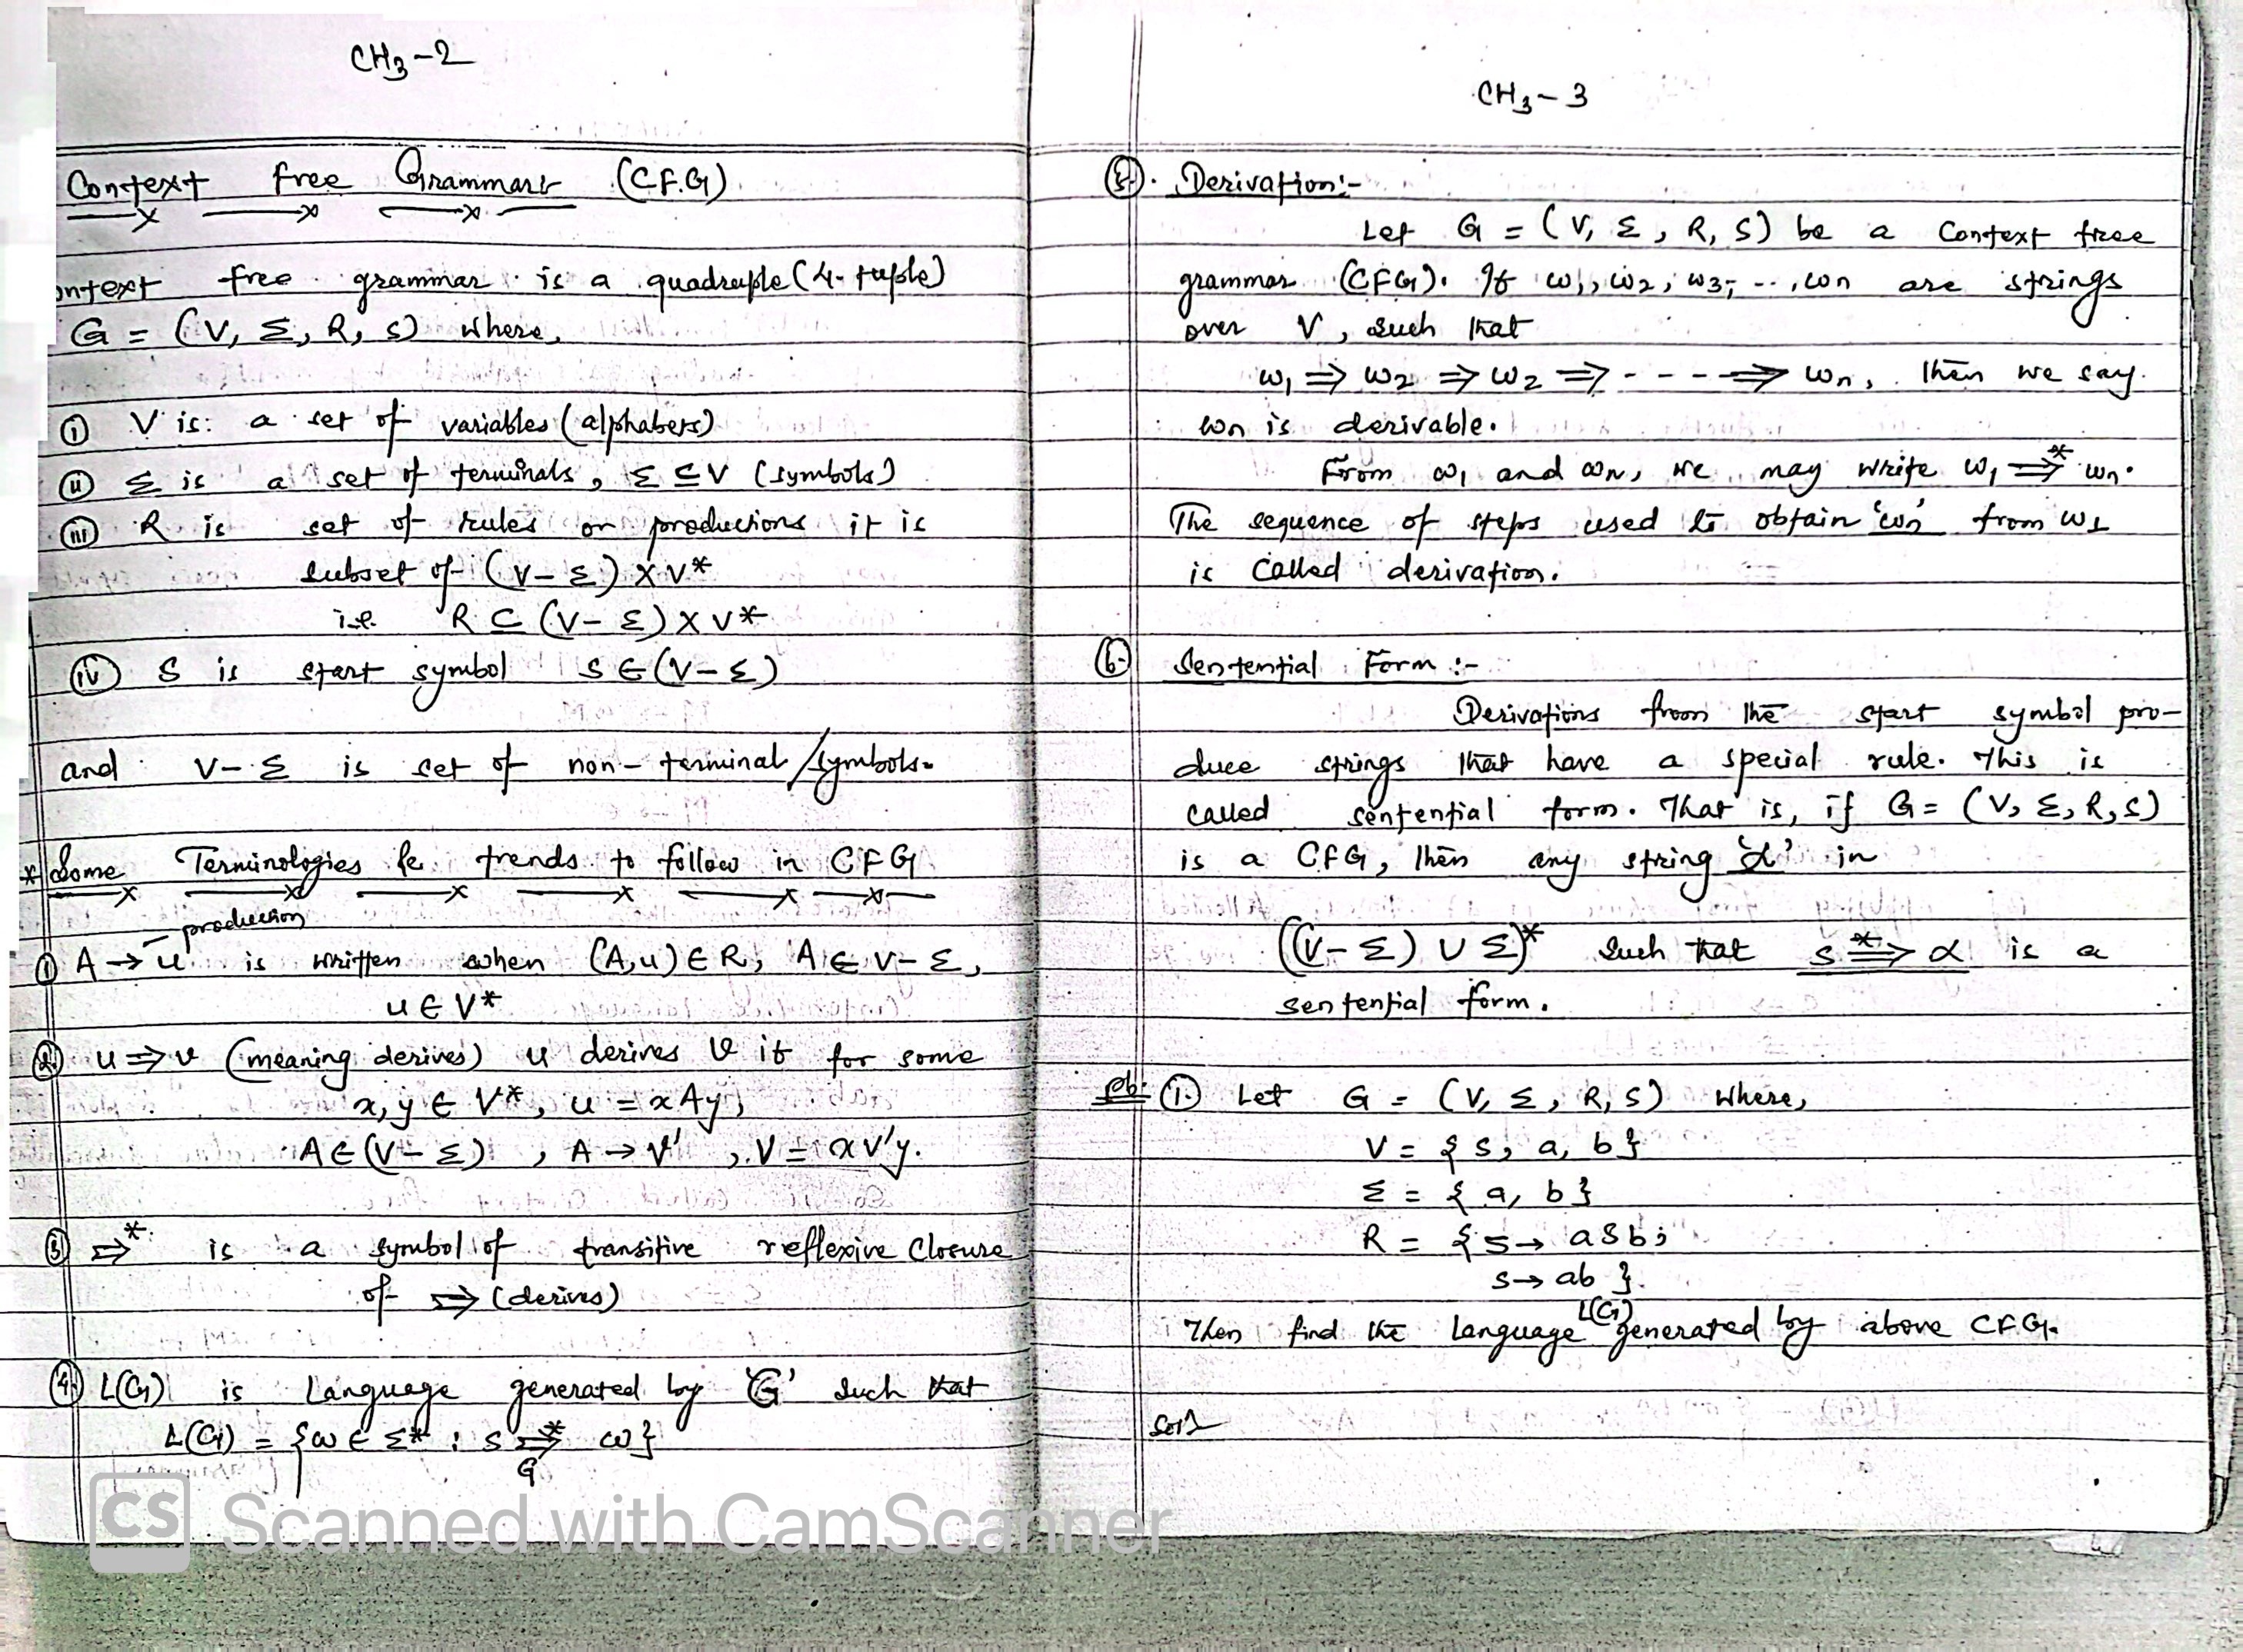 CH3-2
Context free Grammars (CF.G)
ontext free grammar is a quadruple (4-tuple)
G = (V, Σ, R, S) where,
(i) V is a set of variables (alphabets)
(ii) Σ is a set of terminals, Σ ⊆ V (symbols)
(iii) R is set of rules or productions it is
subset of (V-Σ) X V*
i.e. R ⊆ (V-Σ) X V*
(iv) S is start symbol S ∈ (V-Σ)
and V-Σ is set of non-terminal/symbols.
* Some Terminologies & trends to follow in CFG
production
(1) A → u is written when (A,u) ∈ R, A ∈ V-Σ,
u ∈ V*
(2) u ⇒ v (meaning derives) u derives v if for some
x, y ∈ V*, u = xAy,
A ∈ (V-Σ), A → v', V = xv'y.
(3) ⇒* is a symbol of transitive reflexive closure
of ⇒ (derives)
(4) L(G) is Language generated by 'G' such that
L(G) = {ω ∈ Σ* : S ⇒*G ω}
CS Scanned with CamScanner
CH3-3
(5). Derivation:-
Let G = (V, Σ, R, S) be a Context free
grammar (CFG). If ω1, ω2, ω3, ..., ωn are strings
over V, such that
ω1 ⇒ ω2 ⇒ ω2 ⇒ ---- ⇒ ωn, then we say
ωn is derivable.
From ω1 and ωn, we may write ω1 ⇒* ωn.
The sequence of steps used to obtain 'ωn' from ω1
is called derivation.
(6) Sentential Form :-
Derivations from the start symbol pro-
duce strings that have a special rule. This is
called sentential form. That is, if G = (V, Σ, R, S)
is a CFG, then any string 'α' in
((V-Σ) ∪ Σ)* such that S ⇒* α is a
sentential form.
pb: (1). Let G = (V, Σ, R, S) where,
V = {S, a, b}
Σ = {a, b}
R = {S → aSb;
S → ab }.
Then find the Language L(G) generated by above CFG.
Soln